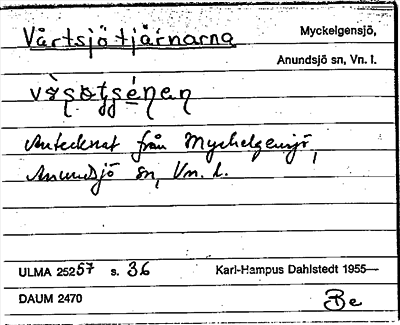 Vårtsjötjärnarna
Myckelgensjö,
Anundsjö sn, Vn. l.
Antecknat från Myckelgensjö,
Anundsjö sn, Vn. l.
ULMA 25257 s. 36
Karl-Hampus Dahlstedt 1955—
DAUM 2470
Be